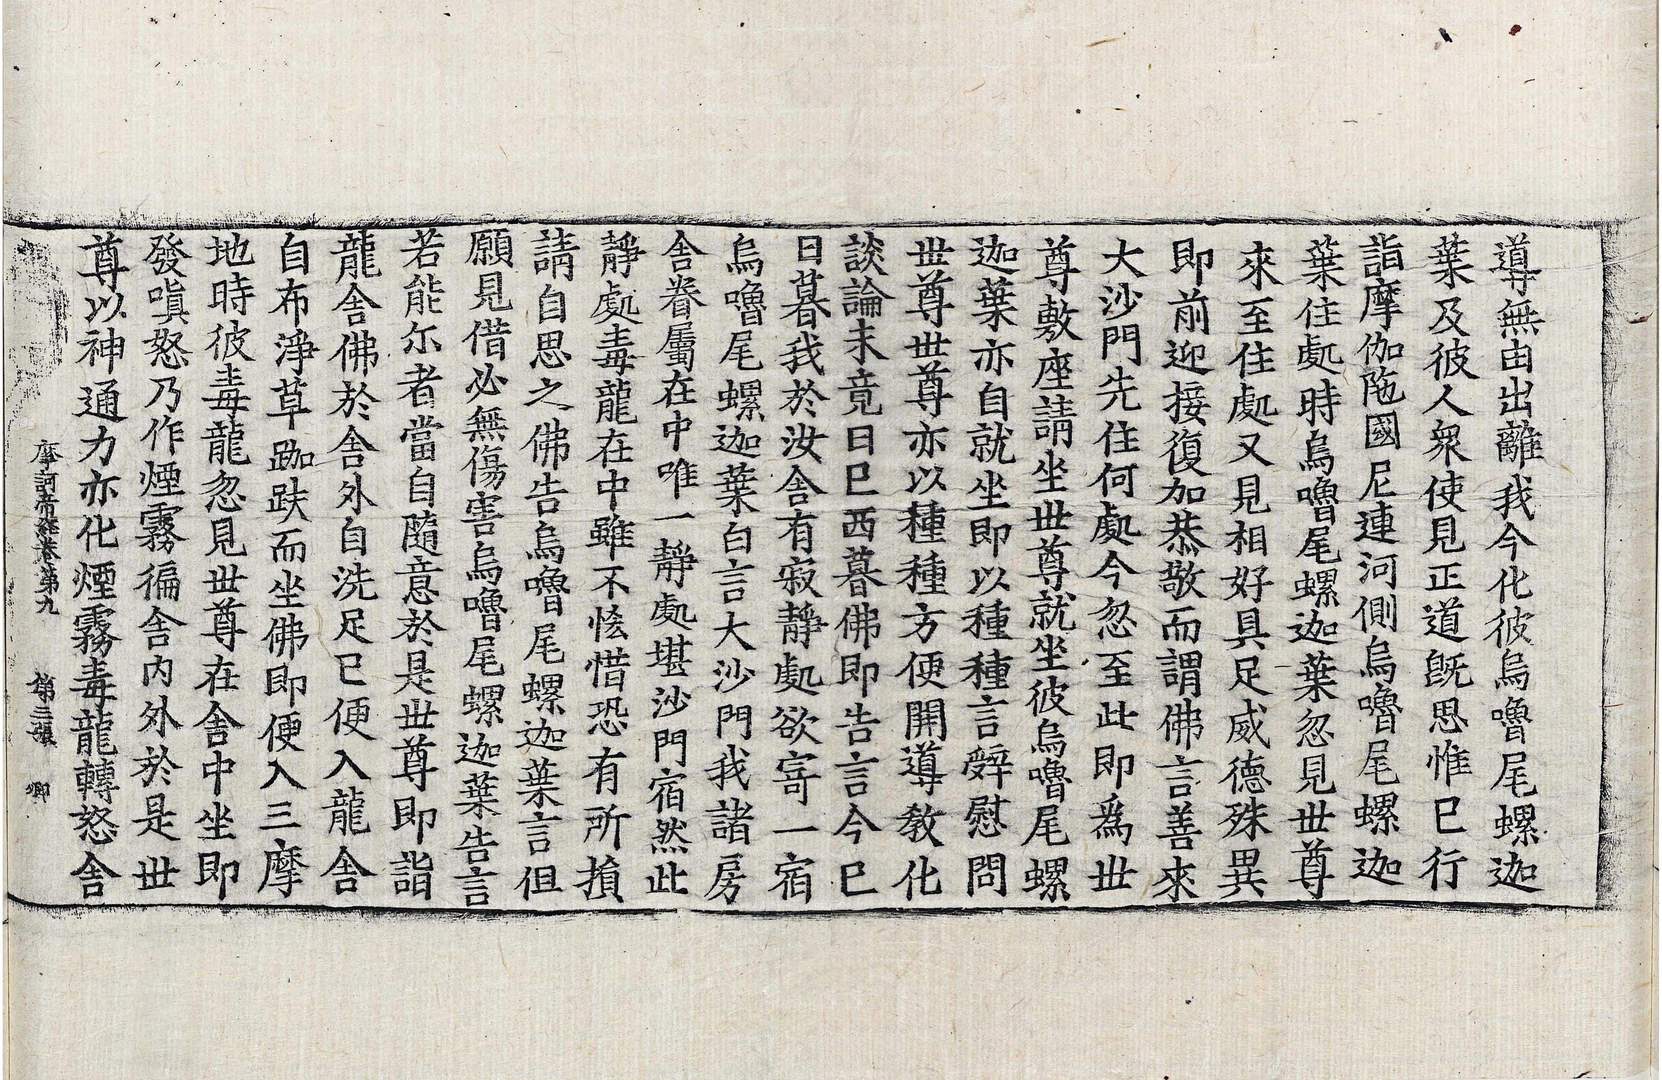 導無由出離我今化彼烏嚕尾螺迦
葉及彼人衆使見正道旣思惟已行
詣摩伽陁國尼連河側烏嚕尾螺迦
葉住處時烏嚕尾螺迦葉忽見世尊
來至住處又見相好具足威德殊異
即前迎接復加恭敬而謂佛言善來
大沙門先住何處今忽至此即爲世
尊敷座請坐世尊就坐彼烏嚕尾螺
迦葉亦自就坐即以種種言辤慰問
世尊世尊亦以種種方便開導教化
談論未竟日已西暮佛即告言今已
日暮我於汝舍有寂靜處欲寄一宿
烏嚕尾螺迦葉白言大沙門我諸房
舍眷屬在中唯一靜處堪沙門宿然此
靜處毒龍在中雖不恡惜恐有所損
請自思之佛告烏嚕尾螺迦葉言但
願見借必無傷害烏嚕尾螺迦葉告言
若能尒者當自隨意於是世尊即詣
龍舍佛於舍外自洗足已便入龍舍
自布淨草跏趺而坐佛即便入三摩
地時彼毒龍忽見世尊在舍中坐即
發嗔怒乃作煙霧徧舍內外於是世
尊以神通力亦化煙霧毒龍轉怒舍
摩訶帝經卷第九 第三張 卿